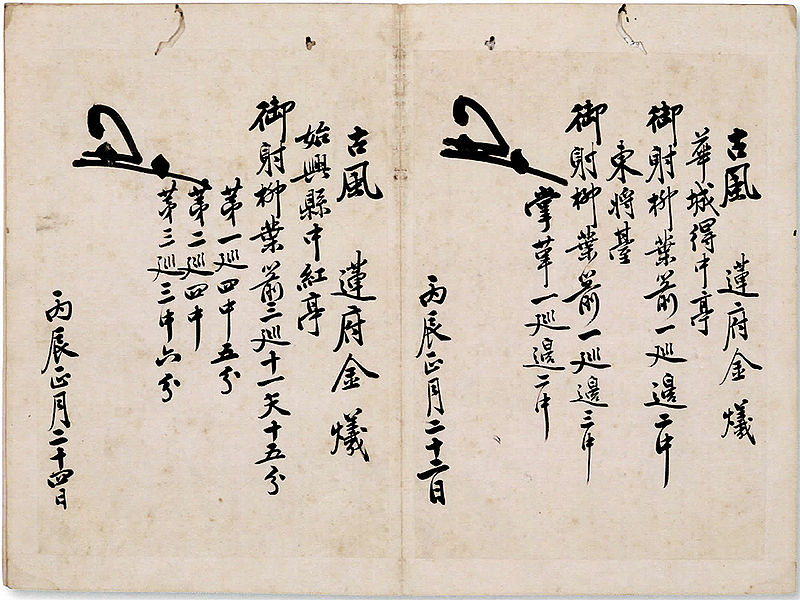 古風 蓮府金爔
華城得中亭
御射柳葉箭一廵邊二中
東將臺
御射柳葉箭一廵邊三中
掌革一廵邊二中
丙辰正月二十二日
古風 蓮府金爔
始興縣中紅亭
御射柳葉箭三廵十一矢十五分
第一廵四中五分
第二廵四中
第三廵三中六分
丙辰正月二十四日